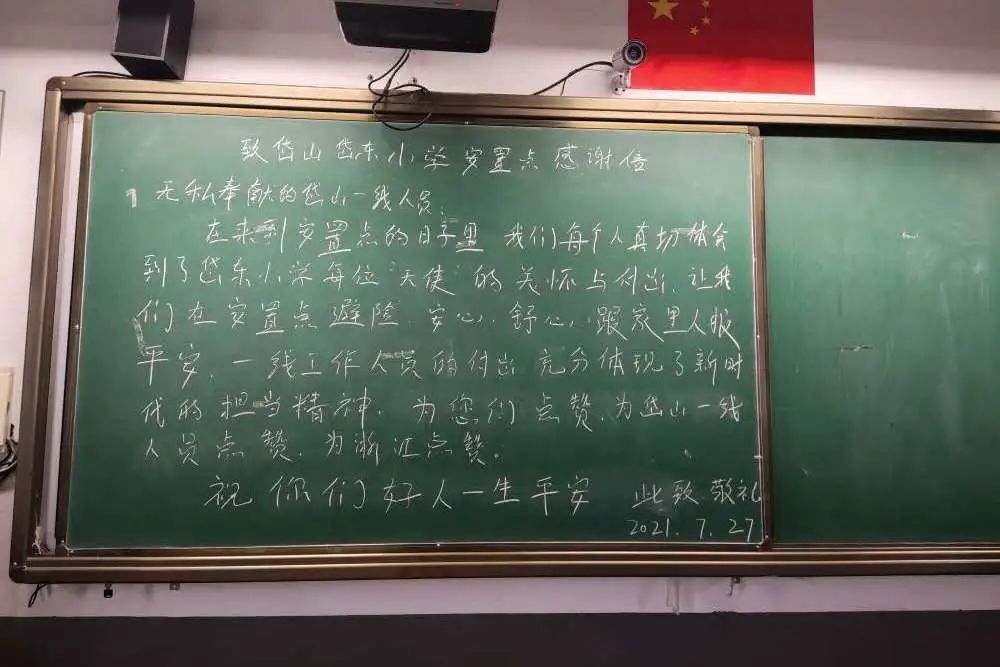 致岱山岱东小学安置点感谢信
无私奉献的岱山一线人员:
在来到安置点的日子里 我们每个人真切体会
到了岱东小学每位"天使"的关怀与付出,让我
们在安置点避险、安心、舒心,跟家里人报
平安,一线工作人员的付出充分体现了新时
代的担当精神,为您们点赞,为岱山一线
人员点赞,为浙江点赞。
祝你们好人一生平安 此致 敬礼
2021.7.27